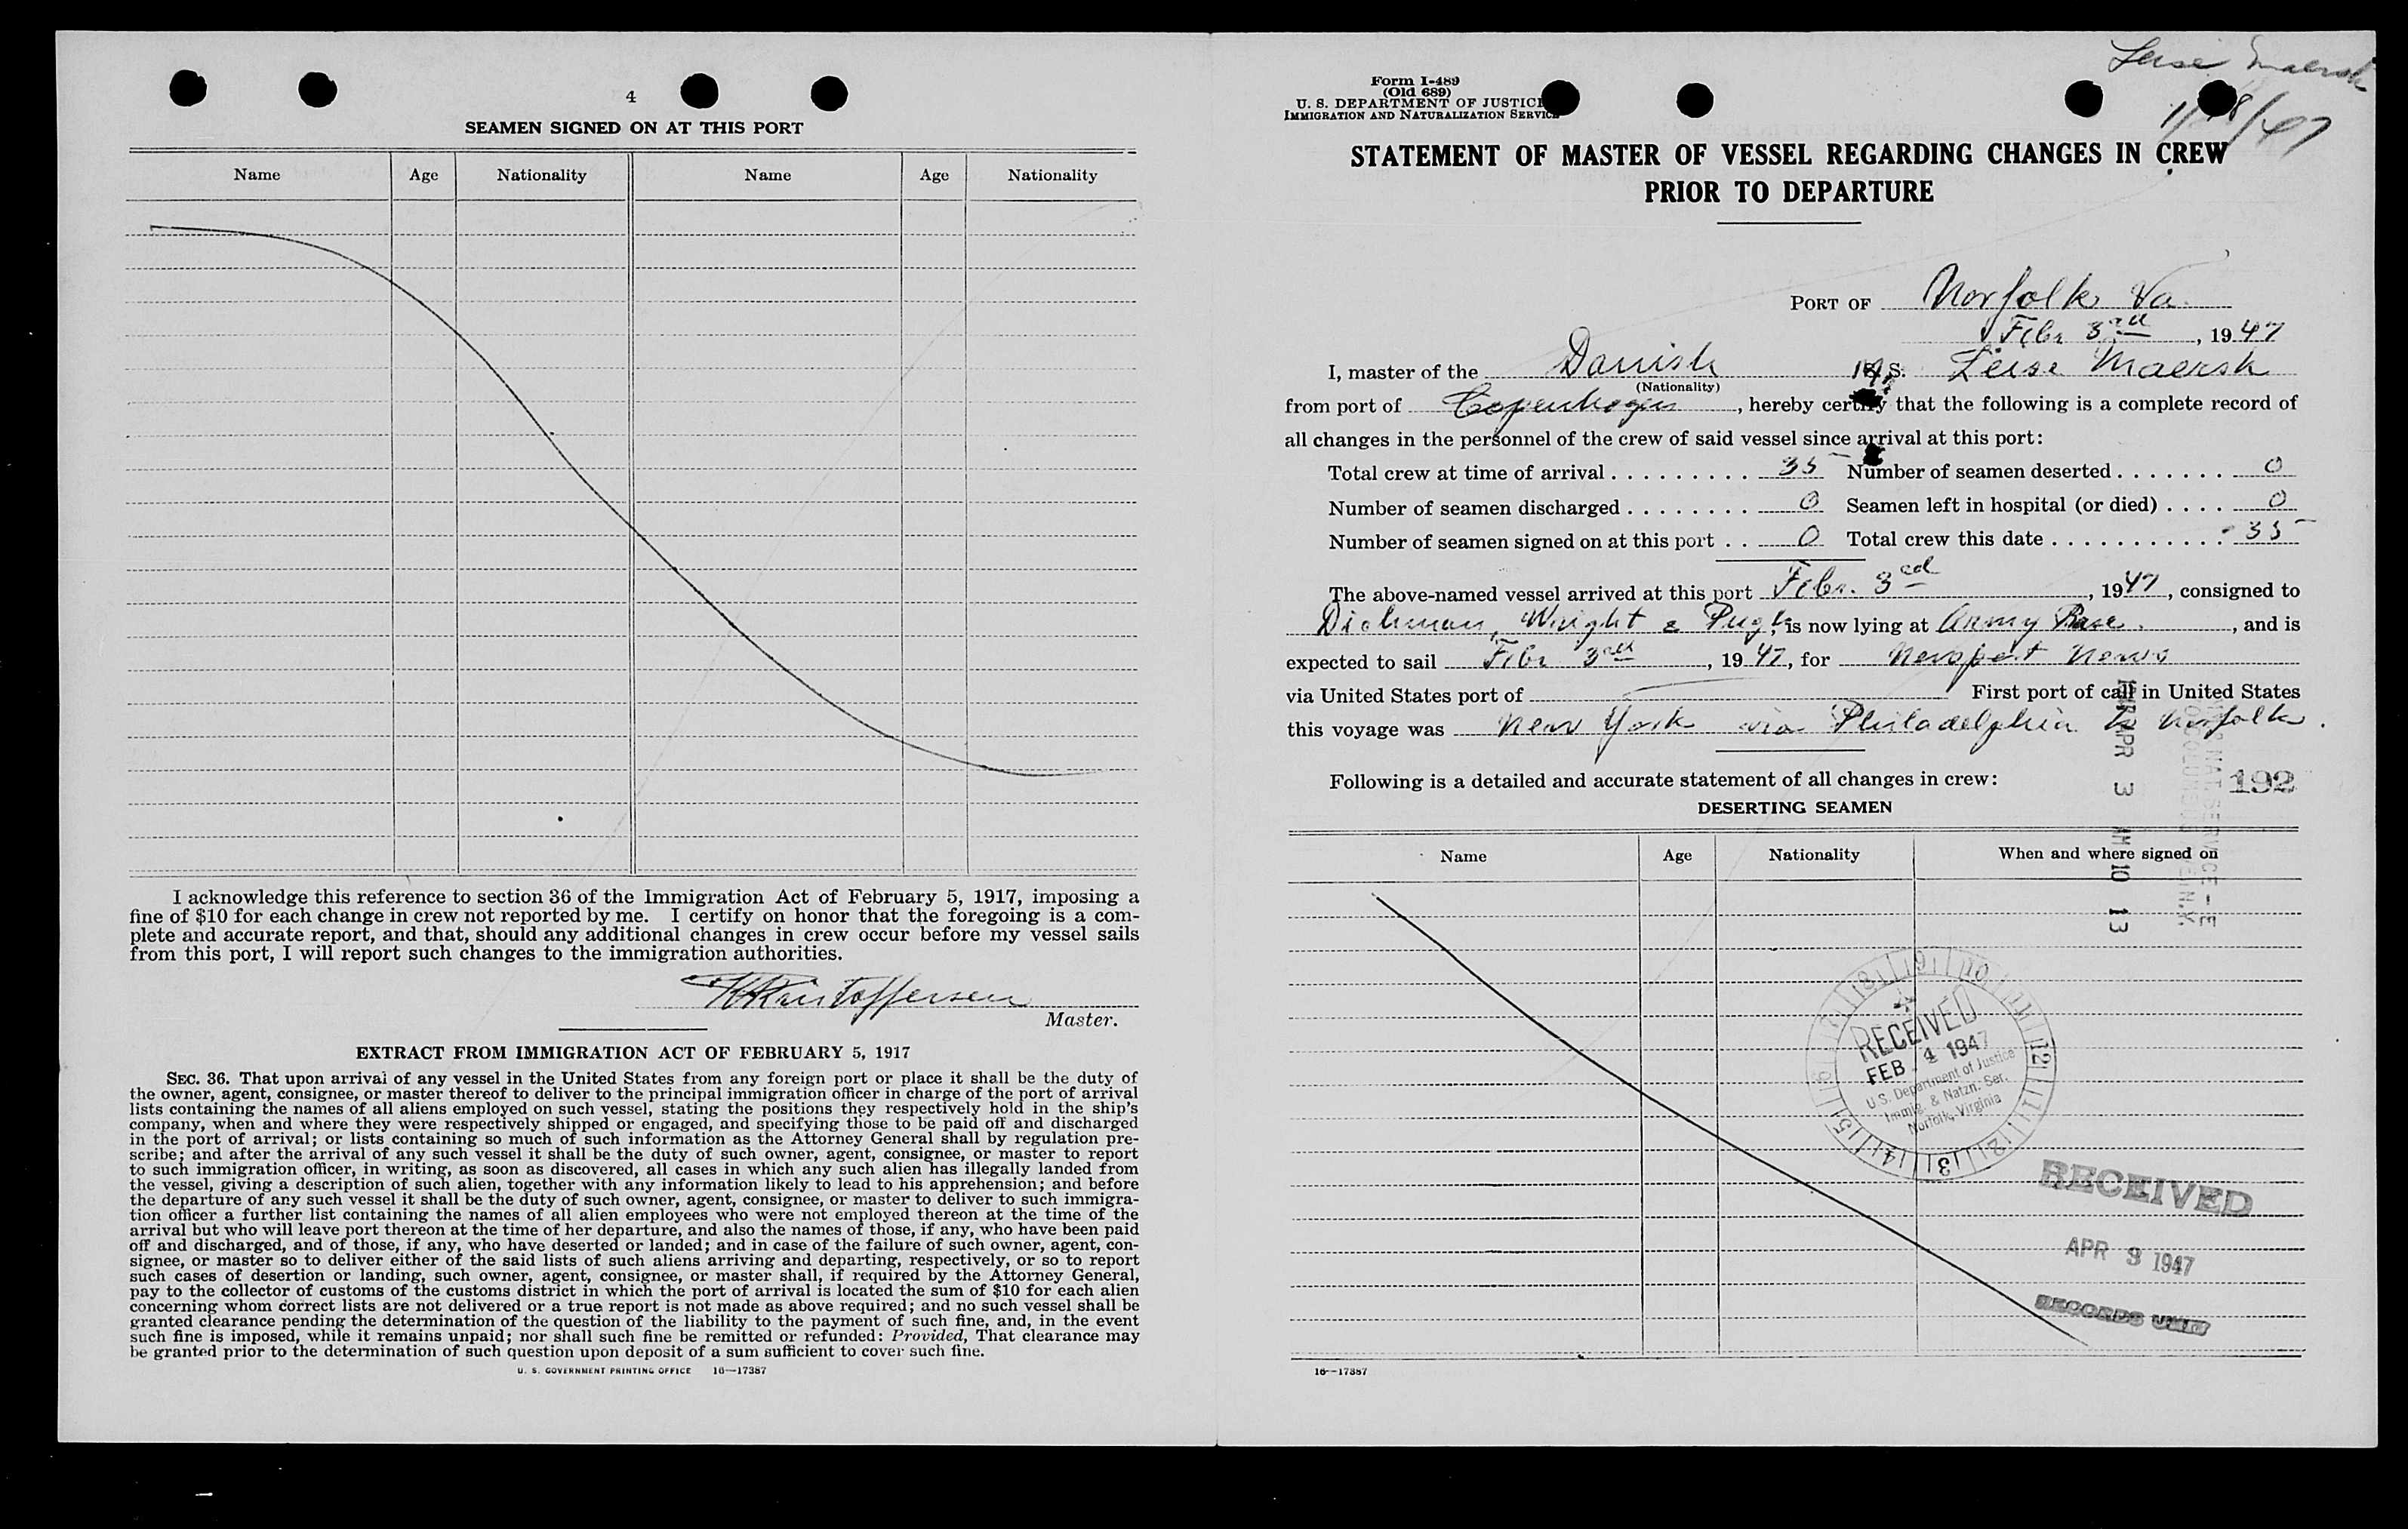 4
SEAMEN SIGNED ON AT THIS PORT
Name Age Nationality Name Age Nationality
I acknowledge this reference to section 36 of the Immigration Act of February 5, 1917, imposing a
fine of $10 for each change in crew not reported by me. I certify on honor that the foregoing is a com-
plete and accurate report, and that, should any additional changes in crew occur before my vessel sails
from this port, I will report such changes to the immigration authorities.
Kristoffersen
Master.
EXTRACT FROM IMMIGRATION ACT OF FEBRUARY 5, 1917
SEC. 36. That upon arrival of any vessel in the United States from any foreign port or place it shall be the duty of
the owner, agent, consignee, or master thereof to deliver to the principal immigration officer in charge of the port of arrival
lists containing the names of all aliens employed on such vessel, stating the positions they respectively hold in the ship's
company, when and where they were respectively shipped or engaged, and specifying those to be paid off and discharged
in the port of arrival; or lists containing so much of such information as the Attorney General shall by regulation pre-
scribe; and after the arrival of any such vessel it shall be the duty of such owner, agent, consignee, or master to report
to such immigration officer, in writing, as soon as discovered, all cases in which any such alien has illegally landed from
the vessel, giving a description of such alien, together with any information likely to lead to his apprehension; and before
the departure of any such vessel it shall be the duty of such owner, agent, consignee, or master to deliver to such immigra-
tion officer a further list containing the names of all alien employees who were not employed thereon at the time of the
arrival but who will leave port thereon at the time of her departure, and also the names of those, if any, who have been paid
off and discharged, and of those, if any, who have deserted or landed; and in case of the failure of such owner, agent, con-
signee, or master so to deliver either of the said lists of such aliens arriving and departing, respectively, or so to report
such cases of desertion or landing, such owner, agent, consignee, or master shall, if required by the Attorney General,
pay to the collector of customs of the customs district in which the port of arrival is located the sum of $10 for each alien
concerning whom correct lists are not delivered or a true report is not made as above required; and no such vessel shall be
granted clearance pending the determination of the question of the liability to the payment of such fine, and, in the event
such fine is imposed, while it remains unpaid; nor shall such fine be remitted or refunded: Provided, That clearance may
be granted prior to the determination of such question upon deposit of a sum sufficient to cover such fine.
U. S. GOVERNMENT PRINTING OFFICE 16—17387
Leise Maersk
Form I-489
(Old 689)
U. S. DEPARTMENT OF JUSTICE
IMMIGRATION AND NATURALIZATION SERVICE
STATEMENT OF MASTER OF VESSEL REGARDING CHANGES IN CREW
PRIOR TO DEPARTURE
PORT OF Norfolk Va.
Febr 3rd, 1947
I, master of the Danish S. Leise Maersk
(Nationality)
from port of Copenhagen, hereby certify that the following is a complete record of
all changes in the personnel of the crew of said vessel since arrival at this port:
Total crew at time of arrival 35 Number of seamen deserted 0
Number of seamen discharged 0 Seamen left in hospital (or died) 0
Number of seamen signed on at this port 0 Total crew this date 35
The above-named vessel arrived at this port Febr. 3rd, 1947, consigned to
Dichman, Wright & Pugh, is now lying at Army Base, and is
expected to sail Febr 3rd, 1947, for Newport News
via United States port of — First port of call in United States
this voyage was New York via Philadelphia to Norfolk.
Following is a detailed and accurate statement of all changes in crew:
192
DESERTING SEAMEN
Name Age Nationality When and where signed on
APR 3 AM 10 13
RECEIVED
FEB 4 1947
U.S. Department of Justice
Immig. & Natzn. Ser.
Norfolk, Virginia
RECEIVED
APR 3 1947
RECORDS UNIT
16—17387